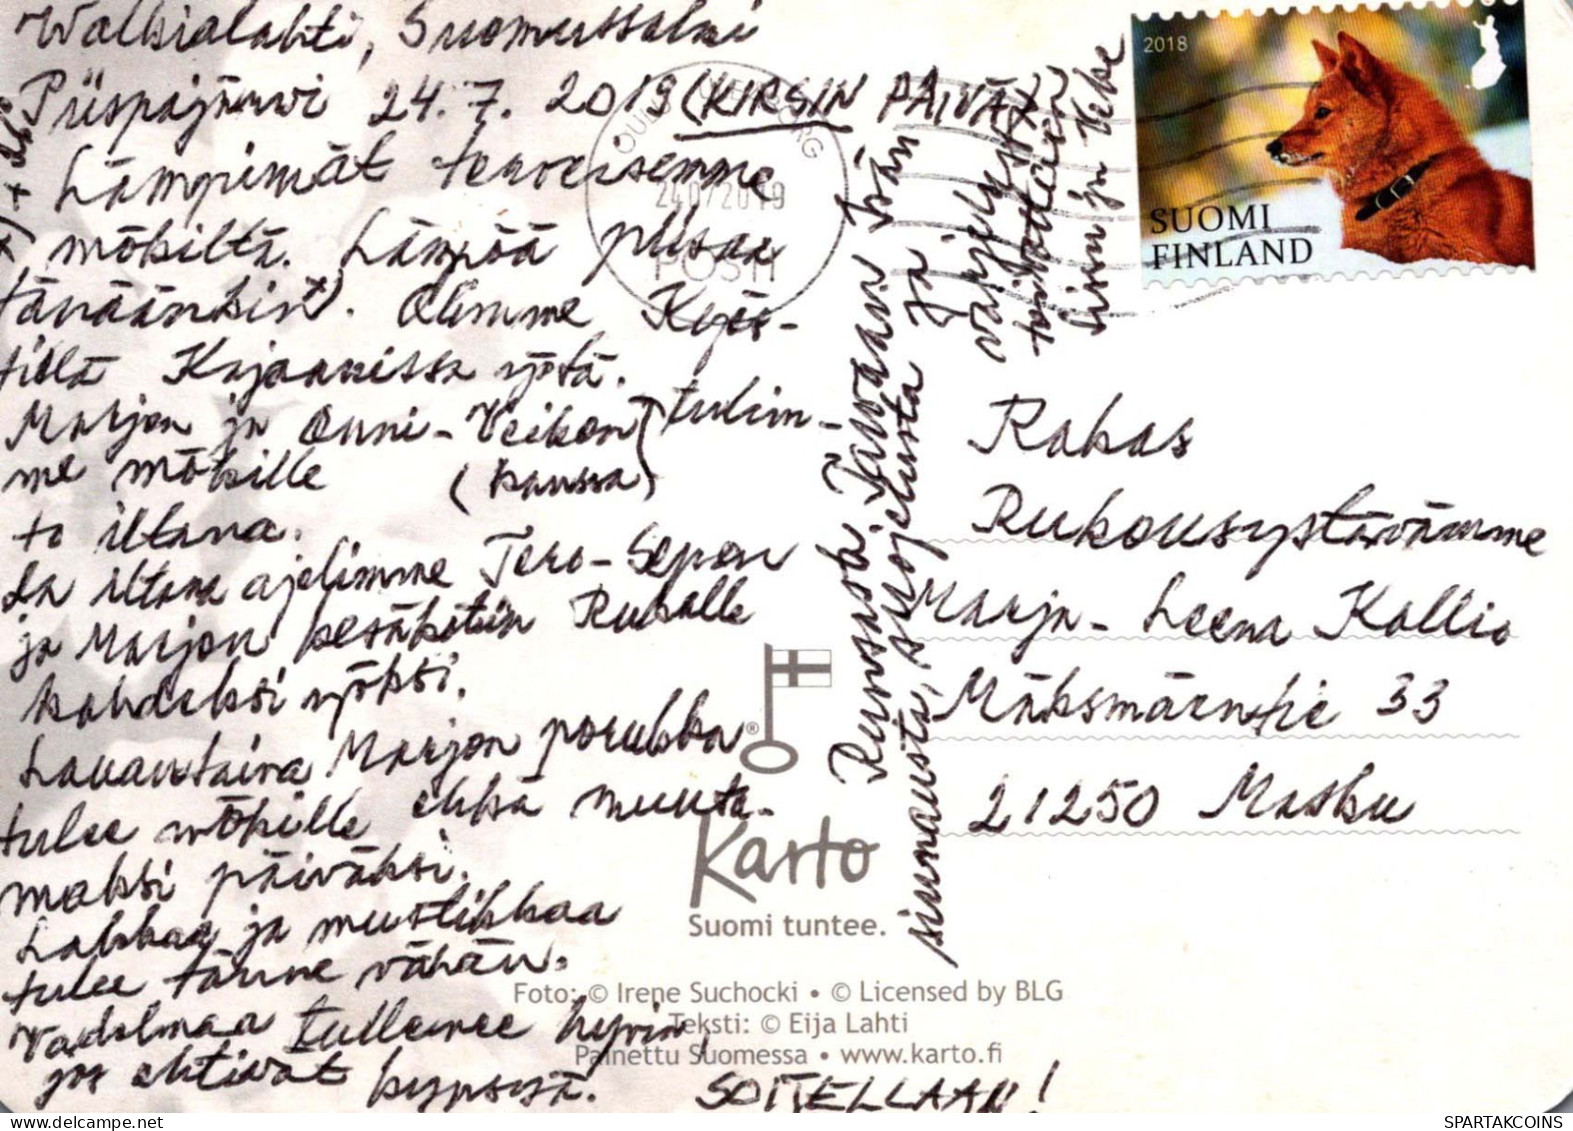 Valkialahti, Suomussalmi
Piispajärvi 24.7.2019 (KIRSIN PÄIVÄ)
Lämpimät terveisemme
mökiltä. Lämpöä piisaa
tänäänkin x). Olimme Kyös-
tillä Kajaanissa yötä.
Marjon ja Onni-Veikon tulim-
(kanssa)
me mökille
to iltana.
La iltana ajelimme Tero-Sepon
ja Marjon kesäkotiin Rukalle
kahdeksi yöksi.
Lauantaina Marjon porukka
tulee mökille ehkä muuta-
maksi päiväksi.
Lakkaa ja mustikkaa
tulee tänne vähän.
Vadelmaa tullenee hyvin,
jos ehtivät kypsyä. SOITELLAAN!
Runsasta Taivaan Isän
siunausta, suojelusta ja
varjelusta
toivottaen
Sirm ja Veke
2018
SUOMI
FINLAND
24072019
POSTI
Rakas
Rukousystävämme
Marja-Leena Kallio
Mäksmäentie 33
21250 Masku
®
Karto
Suomi tuntee.
Foto: © Irene Suchocki • © Licensed by BLG
Teksti: © Eija Lahti
Painettu Suomessa • www.karto.fi
SPARTAKCOINS